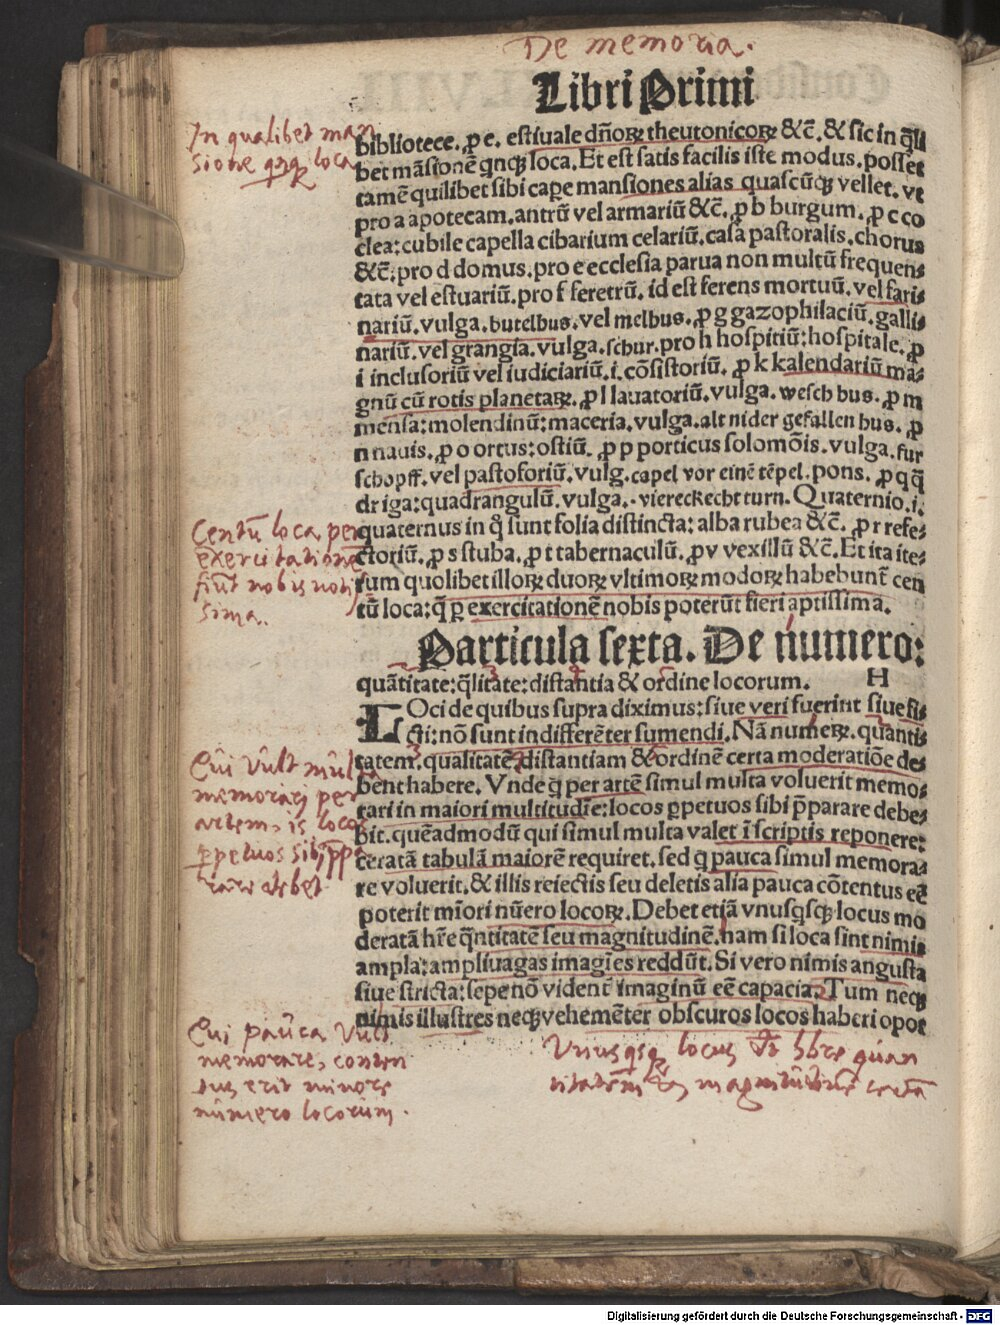 De memoria.
Libri Primi
In qualibet man
sione quinque loca
bibliotece. ꝑ e. estiuale dñoꝝ theutonicoꝝ &c̄. & sic in q̄li
bet mãsionē qnqꝫ loca. Et est satis facilis iste modus. posset
tamē quilibet sibi cape mansiones alias quascūqꝫ vellet. vt
pro a apotecam. antrū vel armariū &c̄. ꝓ b burgum. ꝓ c co
clea: cubile capella cibarium celariū. casa pastoralis. chorus
&c̄. pro d domus. pro e ecclesia parua non multū frequen⸗
tata vel estuariū. pro f feretrū. id est ferens mortuū. vel fari⸗
nariū. vulga. butelhus. vel melhus. ꝓ g gazophilaciū. galli⸗
nariū. vel grangia. vulga. schur. pro h hospitiū: hospitale. ꝓ
i inclusoriū vel iudiciariū. i. cōsistoriū. ꝓ k kalendariū ma⸗
gnū cū rotis planetaꝝ. ꝓ l lauatoriū. vulga. wesch hus. ꝓ m
mensa: molendinū: maceria. vulga. alt nider gefallen hus. ꝓ
n nauis. ꝓ o ortus: ostiū. ꝓ p porticus solomōis. vulga. fur
schopff. vel pastoforiū. vulg. capel vor einē tēpel. pons. ꝓ q q̄
driga: quadrangulū. vulga. viereckecht turn. Quaternio. i.
quaternus in q̄ sunt folia distincta: alba rubea &c̄. ꝓ r refe⸗
ctoriū. ꝓ s stuba. ꝓ t tabernaculū. ꝓ v vexillū &c̄. Et ita ite⸗
rum quolibet illoꝝ duoꝝ vltimoꝝ modoꝝ habebunt̄ cen
tū loca: q̄ ꝑ exercitationē nobis poterūt fieri aptissima.
Centū loca per
exercitationē
fiūt nobis noti
sima.
Particula sexta. De numero:
quãtitate: q̄litate: distantia & ordine locorum. H
LOci de quibus supra diximus: siue veri fuerint siue fi⸗
cti: nō sunt indifferēter sumendi. Nã numeꝝ. quãti⸗
tatem, qualitatē distantiam & ordinem certa moderatiōe de⸗
bent habere. Vnde q̄ per artē simul multa voluerit memo⸗
rari in maiori multitudīe: locos ꝑpetuos sibi p̄parare debe⸗
bit. quēadmodū qui simul multa valet ī scriptis reponere:
ceratã tabulã maiorē requiret. sed q̄ pauca simul memora⸗
re voluerit. & illis reiectis seu deletis alia pauca cōtentus eē
poterit mīori nūero locoꝝ. Debet etiã vnusqsqꝫ locus mo
deratã hr̄e q̄ntitatē seu magnitudinē. nam si loca sint nimis
ampla: ampliuagas imagīes reddūt. Si vero nimis angusta
siue stricta: sepe nō vident̄ imaginū eē capacia. Tum neqꝫ
nimis illustres neqꝫ vehemēter obscuros locos haberi opor
Qui vult multa
memorari per
artem, is locos
ꝑpetuos sibi p̄pa
rare debet
Qui pauca vult
memorare, conten
tus erit minore
numero locorum.
Vnusqsqꝫ locus
Digitalisierung gefördert durch die Deutsche Forschungsgemeinschaft - DFG